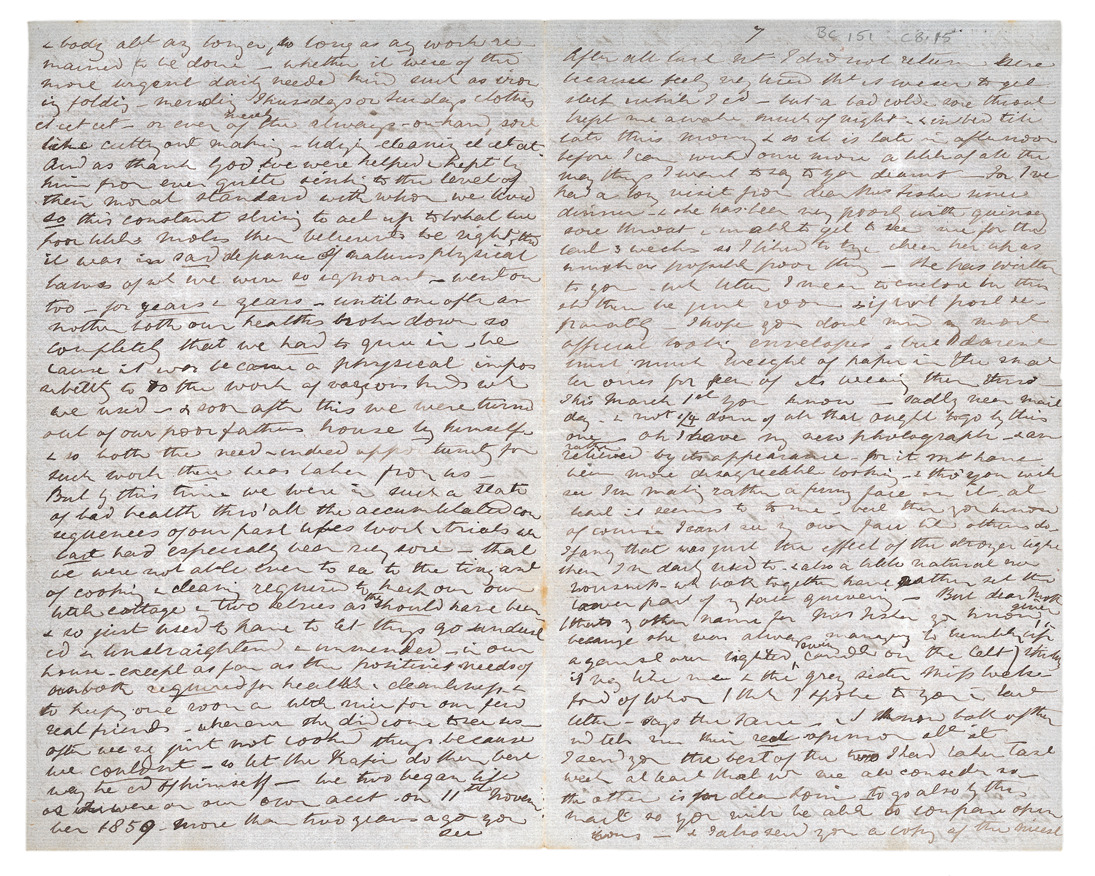 & body abt any longer, so long as any work re
mained to be done – whether it were of the
more urgent daily needed kind such as iron
ing folding – mending Thursdays or Sundays clothes
et cet cet – or even of the always – on hand, sort
like cutting out making – tidying – cleaning et cet at
And as thank God we were helped & kept by
him from ever quite sinking to the level of
their moral standard with whom we lived
so this constant striving to act up to what we
poor little then believed to be right, tho
it was in sad defiance of natures physical
laws of wh we were so ignorant – went on
too – for years & years – until one after an
nother both our healths broke down so
completely that we had to give in – be
cause it was became a physical impos
sibility to do the work of various kinds wh
we used – & soon after this we were turned
out of our poor fathers house by himself
& so both the need & indeed opportunity for
such work there was taken from us –
But by this time we were in such a state
of bad health thro' all the accumulated con
sequences of our past lifes work & trials wh
last had especially been very sore – that
we were not able even to see to the tiny art
of cooking & cleaning required to keep our own
little cottage & two selves as they should have been
& so just used to have to let things go undust
e'd & unstraightened & unmended – in our
house – except as far as the positive needs of
us both required for health & cleanliness &
to keep one room a little nice for our few
real friends – whenever they did come to see us –
often we've just not cooked things because
we couldn't – so let the do their best
way he c'd of himself – we two began life
as it were on our own acct – on 11th Novem
ber 1859 – more than two years ago you
see
7
BC 151 CB 15
After all last nt I did not return here
because feely very tired tht is wiser to get
sleep while I c'd – but a bad cold & sore throat
kept me awake much of night & in bed till
late this morng & so it is late in afternoon
before I can write once more a little of all the
many things I want to say to you dearest – for I've
had a long visit from dear Mrs Fisher since
dinner – & she has been very poorly with quinsey
sore throat & unable to get to see me for the
last 3 weeks so I liked to try cheer her up as
much as possible poor thing – She has written
to you – wh letter I mean to enclose in this
if there be just room – & if not post se
parately – I hope you dont mind my most
official looking envelopes – but I darent
trust much weight of paper in the smal
ler ones for fear of its wearing them thro –
This March 1st you know – sadly near mail
day – & not 1/4 done of all that ought to go by this
one – oh I have my new photograph – & am
rather relieved by its appearance – for it mt have
been more disagreeable looking – & tho' you will
see I'm making rather a funny face in it – at
least it seems so to me – but then you know
of course I cant see my own face as others do
I fancy that was just the effect of the stronger light
than I'm daily used to – & also a little natural ner
vousness – wh both together have rather set the
lower part of my face quivering – But dear
(thats my other name for Mrs Fisher you know, given
because she was always managing to tumble up
against our lighted candle on the ) thinks
it very like me & the grey sister Miss
fond of whom I think I spoke to you in last
letter – says the same – & I know both of them
wd tell me their real opinion abt it
I send you the best of the two I had taken last
week at least that wh we all consider so –
the other is for dear home to go also by this
mail so you will be able to compare opin
ions – & I also send you a copy of the